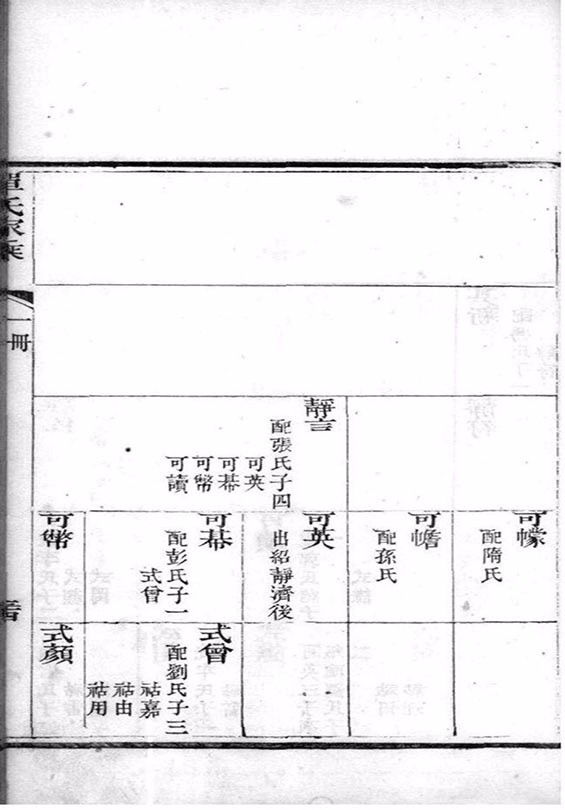 靜言
配張氏子四
可英
可幕
可幣
可讀
可幪
配隋氏
可幨
配孫氏
可英
出紹靜濟後
可幕
配彭氏子一
式曾
可幣
式曾
配劉氏子三
祜嘉
祜由
祜用
式顏
氏家乘
一冊